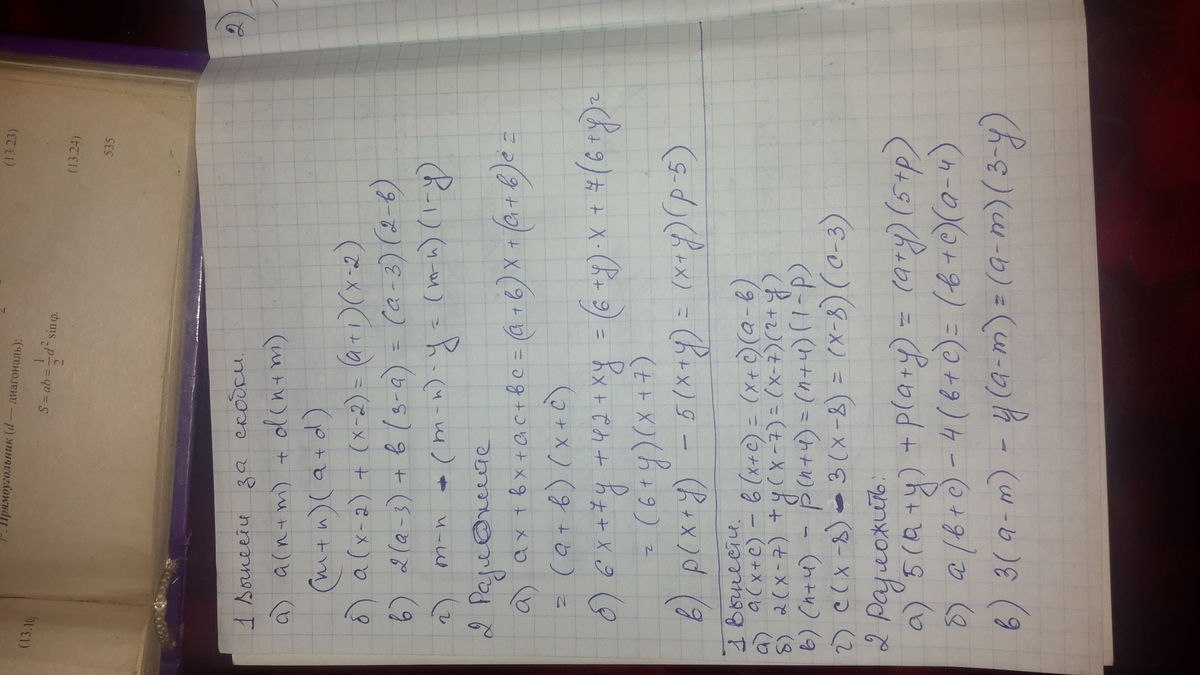 (13.10)
1°. Прямоугольник (d — диагональ):
S = ab = 1/2 d² sin φ.
(13.23)
(13.24)
535
2)
1 Вынести за скобки.
а) a(n+m) + d(n+m)
(m+n)(a+d)
б) a(x-2) + (x-2) = (a+1)(x-2)
в) 2(a-3) + b(3-a) = (a-3)(2-b)
г) m-n - (m-n)·y = (m-n)(1-y)
2 Разложите
а) ax+bx+ac+bc = (a+b)x+(a+b)c =
= (a+b)(x+c)
б) 6x+7y+42+xy = (6+y)·x+7(6+y)=
= (6+y)(x+7)
в) p(x+y) - 5(x+y) = (x+y)(p-5)
1 Вынести.
а) a(x+c) - b(x+c) = (x+c)(a-b)
б) 2(x-7) + y(x-7) = (x-7)(2+y)
в) (n+4) - p(n+4) = (n+4)(1-p)
г) c(x-8) - 3(x-8) = (x-8)(c-3)
2 Разложить.
а) 5(a+y) + p(a+y) = (a+y)(5+p)
б) a(b+c) - 4(b+c) = (b+c)(a-4)
в) 3(a-m) - y(a-m) = (a-m)(3-y)